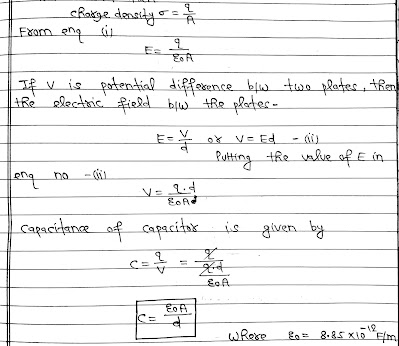 charge density σ = q/A
From enq (i)
E = q/ε0A
If V is potential difference b/w two plates, then
the electric field b/w the plates-
E = V/d or V = Ed - (ii)
Putting the value of E in
enq no -(ii)
V = q.d/ε0A
Capacitance of capacitor is given by
C = q/V = q/(q.d/ε0A)
C = ε0A/d
Where ε0 = 8.85 × 10^-12 F/m